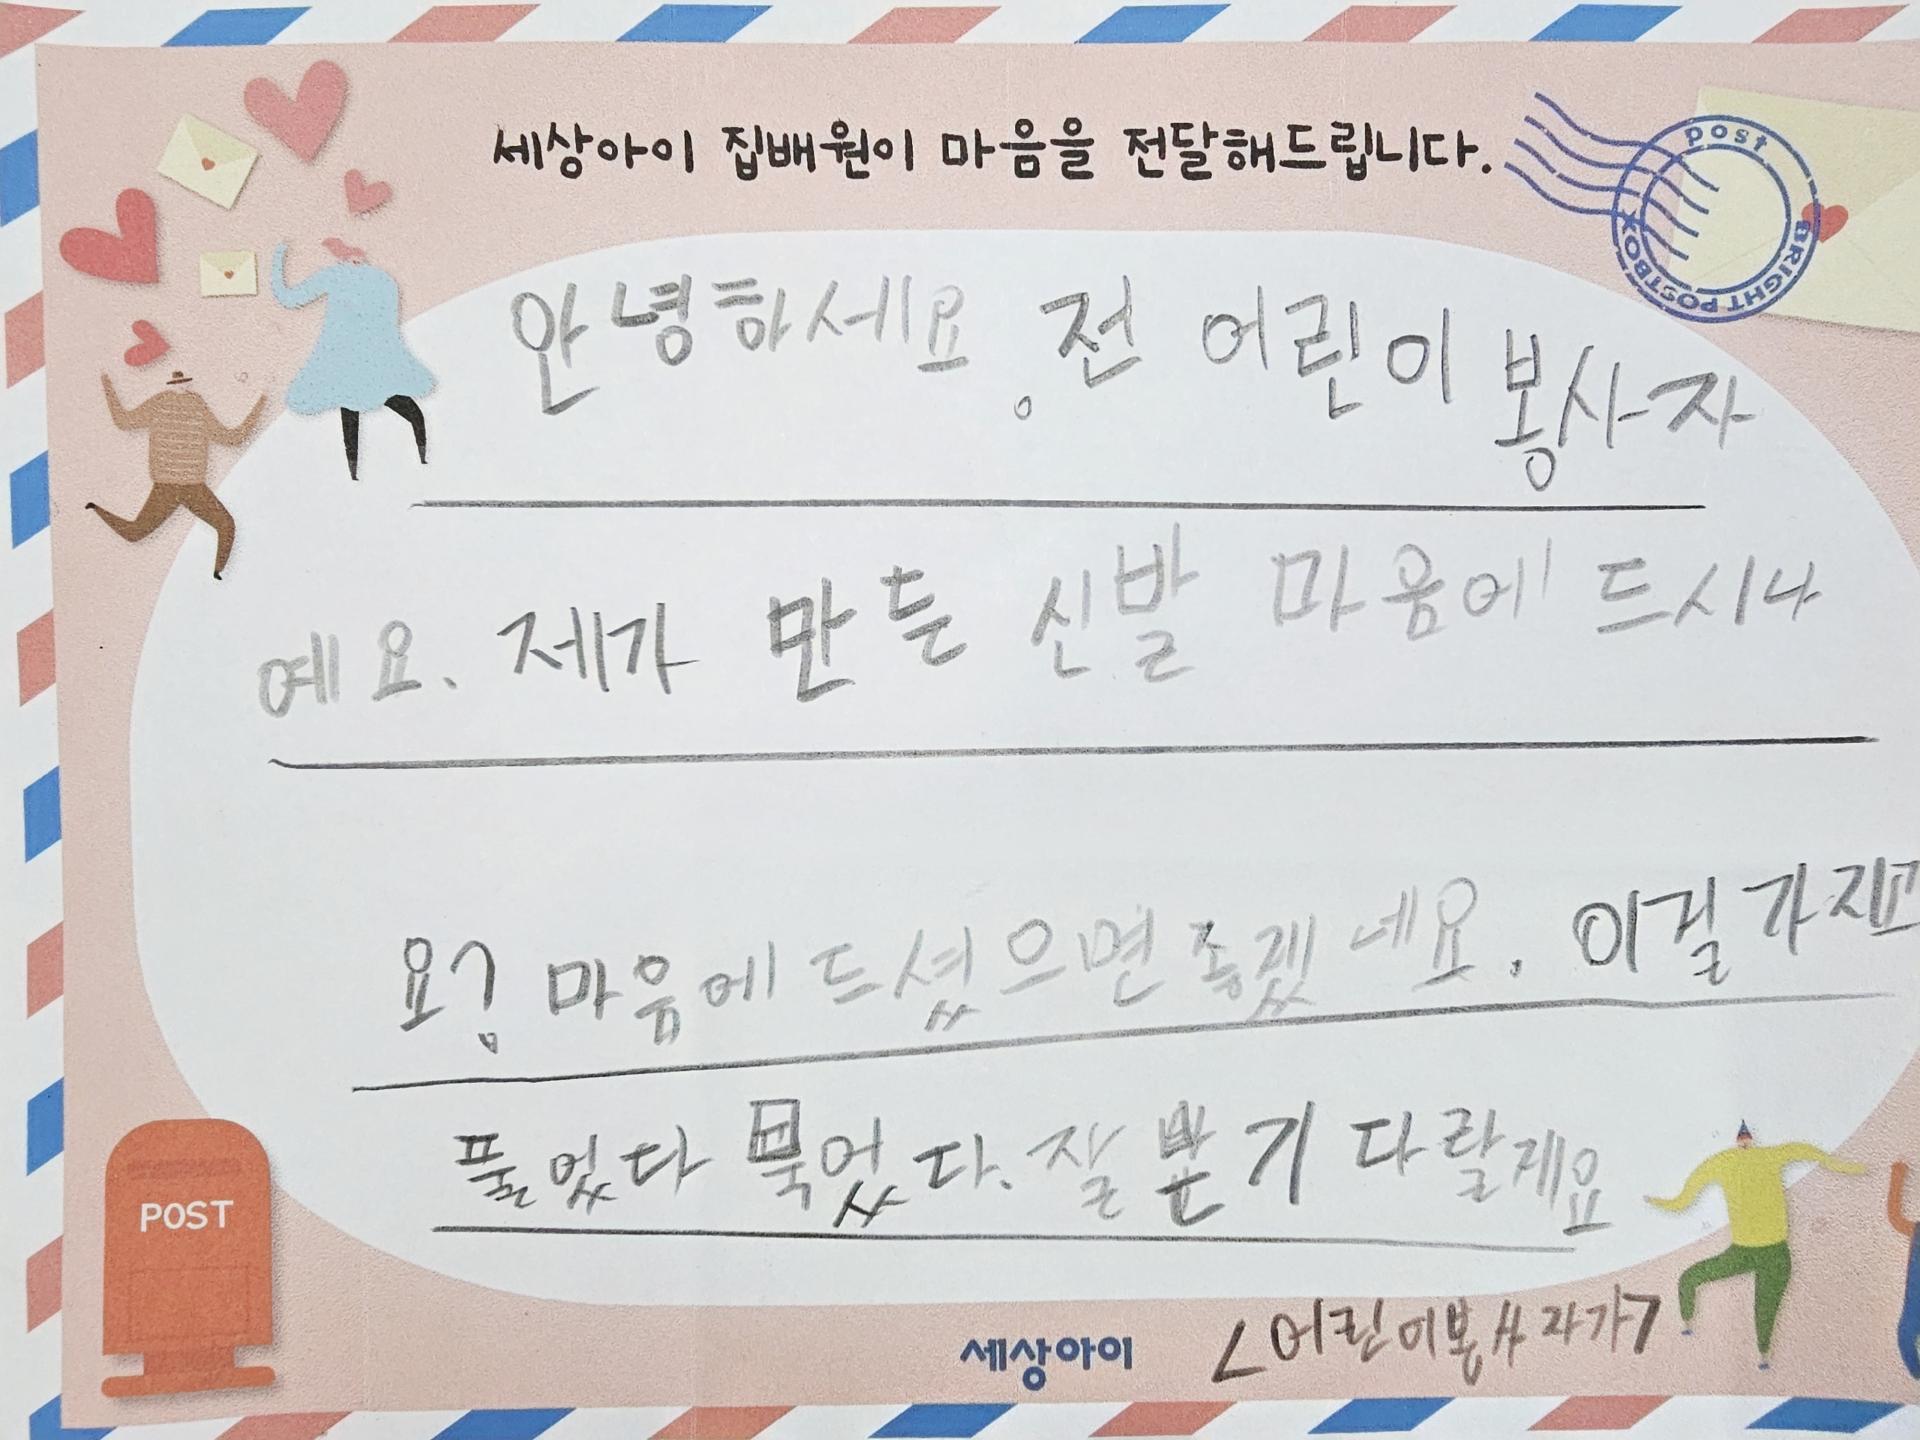 세상아이 집배원이 마음을 전달해드립니다.
post
BRIGHT POSTBOX
안녕하세요. 전 어린이 봉사자
예요. 제가 만든 신발 마음에 드시나
요? 마음에 드셨으면 좋겠네요. 이걸 가지고
풀었다 묶었다. 잘 받기 다랄게요
POST
세상아이
<어린이봉사자가>